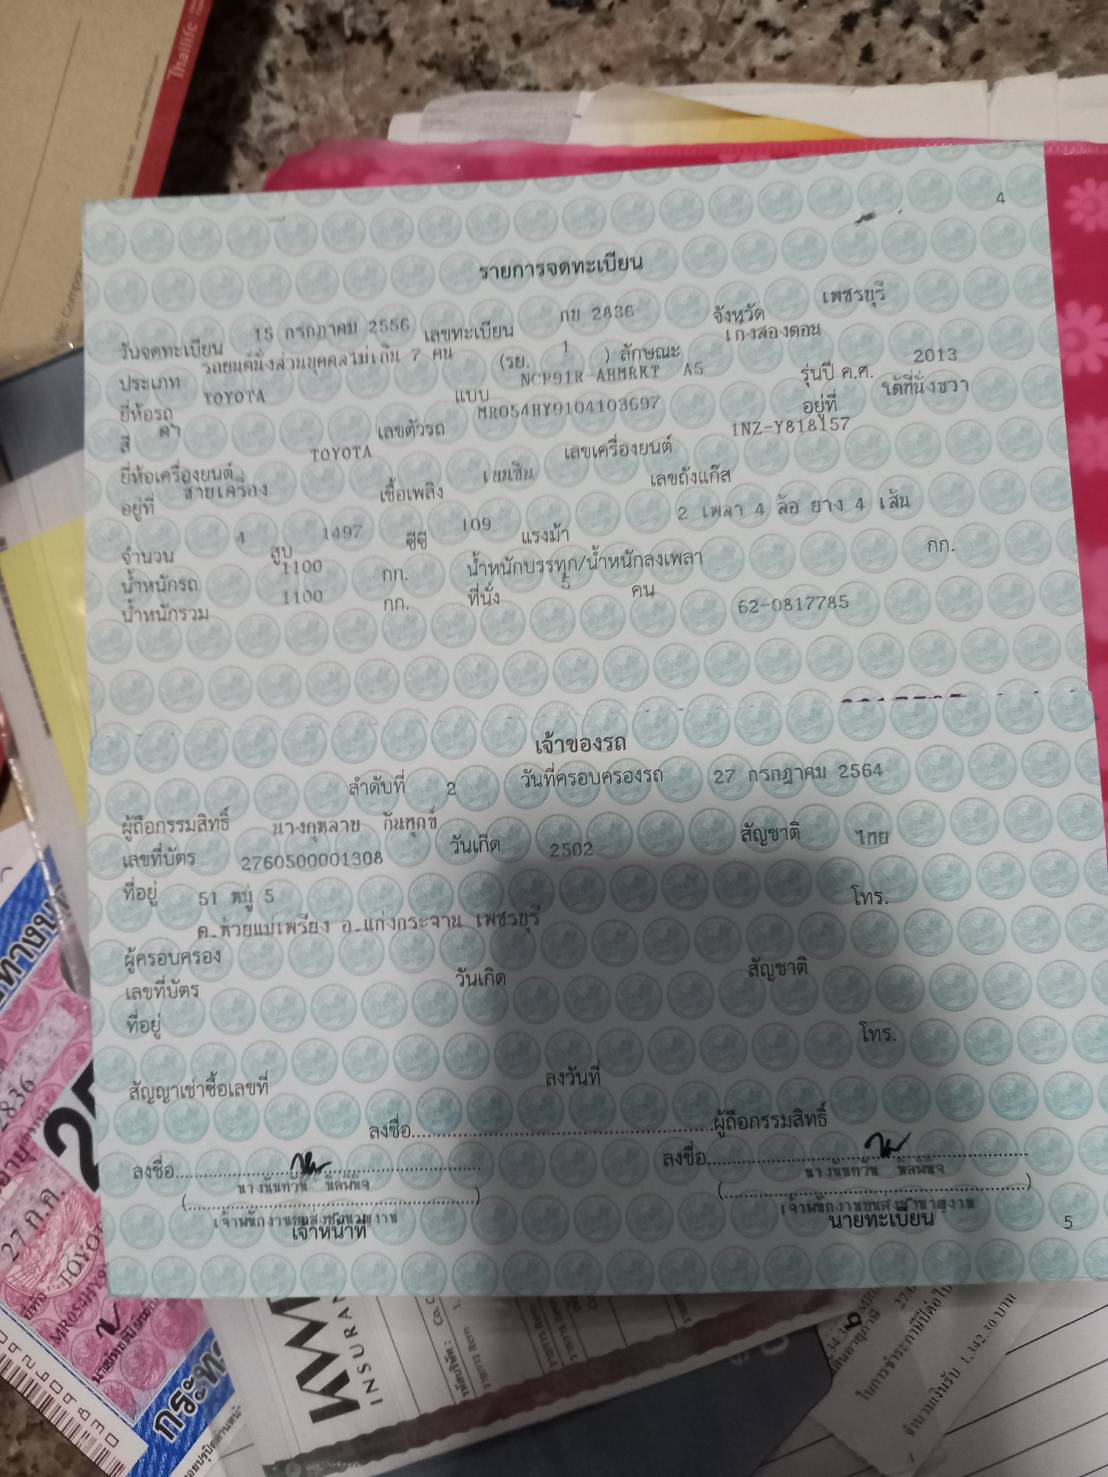 Thailife
4
รายการจดทะเบียน
วันจดทะเบียน 15 กรกฎาคม 2556 เลขทะเบียน กบ 2836 จังหวัด เพชรบุรี
ประเภท รถยนต์นั่งส่วนบุคคลไม่เกิน 7 คน (รย. 1 ) ลักษณะ เก๋งสองตอน
ยี่ห้อรถ TOYOTA แบบ NCP91R-AHMRKT A5 รุ่นปี ค.ศ. 2013
สี ดำ เลขตัวรถ MR054HY9104103697 อยู่ที่ ใต้ที่นั่งขวา
ยี่ห้อเครื่องยนต์ TOYOTA เลขเครื่องยนต์ 1NZ-Y818157
อยู่ที่ ซ้ายเครื่อง เชื้อเพลิง เบนซิน เลขถังแก๊ส
จำนวน 4 สูบ 1497 ซีซี 109 แรงม้า 2 เพลา 4 ล้อ ยาง 4 เส้น
น้ำหนักรถ 1100 กก. น้ำหนักบรรทุก/น้ำหนักลงเพลา กก.
น้ำหนักรวม 1100 กก. ที่นั่ง 5 คน
62-0817785
เจ้าของรถ
ลำดับที่ 2 วันที่ครอบครองรถ 27 กรกฎาคม 2564
ผู้ถือกรรมสิทธิ์ นางกุหลาบ กันทุกข์
เลขที่บัตร 2760500001308 วันเกิด 2502 สัญชาติ ไทย
ที่อยู่ 51 หมู่ 5 โทร.
ต.ห้วยแม่เพรียง อ.แก่งกระจาน เพชรบุรี
ผู้ครอบครอง
เลขที่บัตร วันเกิด สัญชาติ
ที่อยู่ โทร.
สัญญาเช่าซื้อเลขที่ ลงวันที่
ลงชื่อ ผู้ถือกรรมสิทธิ์
ลงชื่อ ลงชื่อ
เจ้าหน้าที่ นายทะเบียน
5
2836
27 ก.ค.
TOYO
INSURAN
จำนวนเงินรับ 1,342.30 บาท